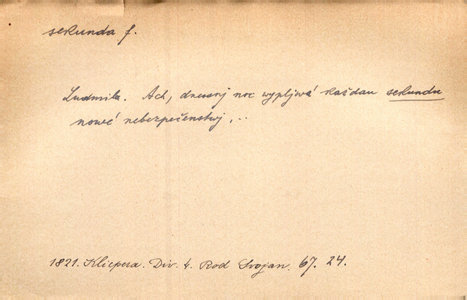 sekunda f.
Ludmila. Ach, dnesnj noc wypljwá každau sekundu
nowé nebezpečenstwj ...
1821. Klicpera. Div. 4. Rod Svojan. 67. 24.